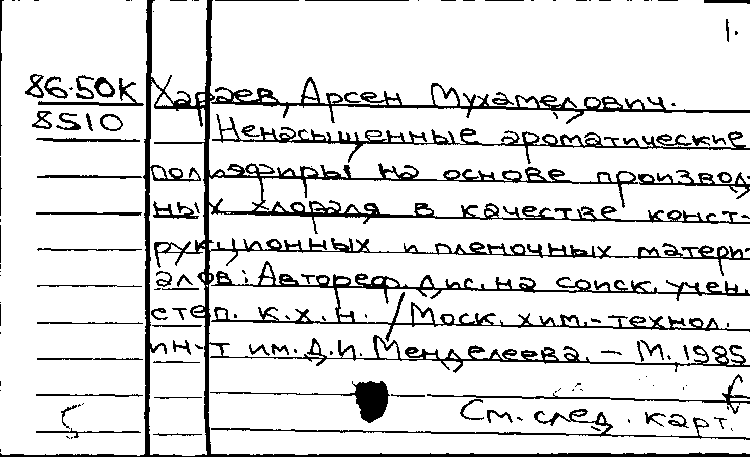 1.
86.50К Хараев, Арсен Мухамедович.
8510 Ненасыщенные ароматические
полиэфиры на основе производ-
ных хлораля в качестве конст-
рукционных и пленочных матери-
алов: Автореф. дис. на соиск. учен.
степ. к.х.н. / Моск. хим.-технол.
ин-т им. Д.И. Менделеева. – М., 1985
См. след. карт.